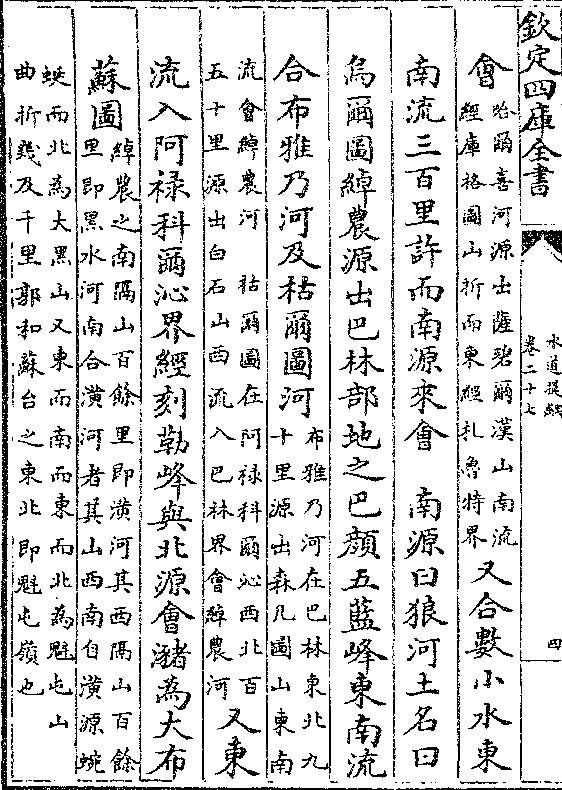 欽定四庫全書
水道提綱
卷二十七
四
會
哈爾喜河源出薩碧爾漢山南流
經庫格圖山折而東經札魯特界
又合數小水東
南流三百里許而南源來會　南源曰狼河土名曰
烏爾圖綽農源出巴林部地之巴顔五藍峰東南流
合布雅乃河及枯爾圖河
布雅乃河在巴林東北九
十里源出森几圖山東南
流會綽農河　枯爾圖在阿禄科爾沁西北百
五十里源出白石山西流入巴林界會綽農河
又東
流入阿禄科爾沁界經刻勒峰與北源會瀦為大布
蘇圖
綽農之南隔山百餘里即潢河其西隔山百餘
里即黑水河南合潢河者其山西南自潢源蜿
蜒而北為大黑山又東而南而東而北為魁屯山
曲折幾及千里郭和蘇台之東北即魁屯嶺也